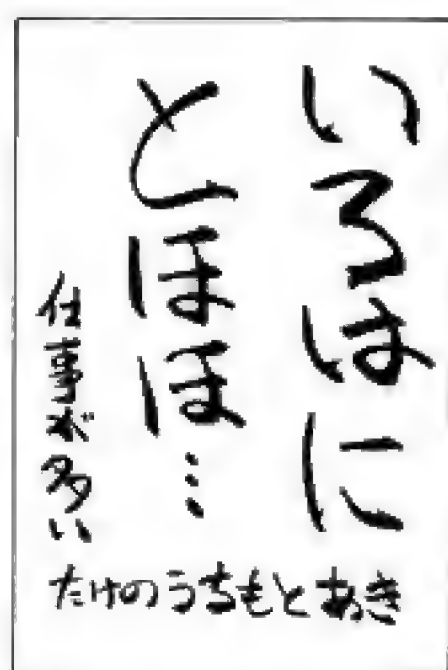 いろはに
とほほ…
仕事が多い
たけのうちもとあき